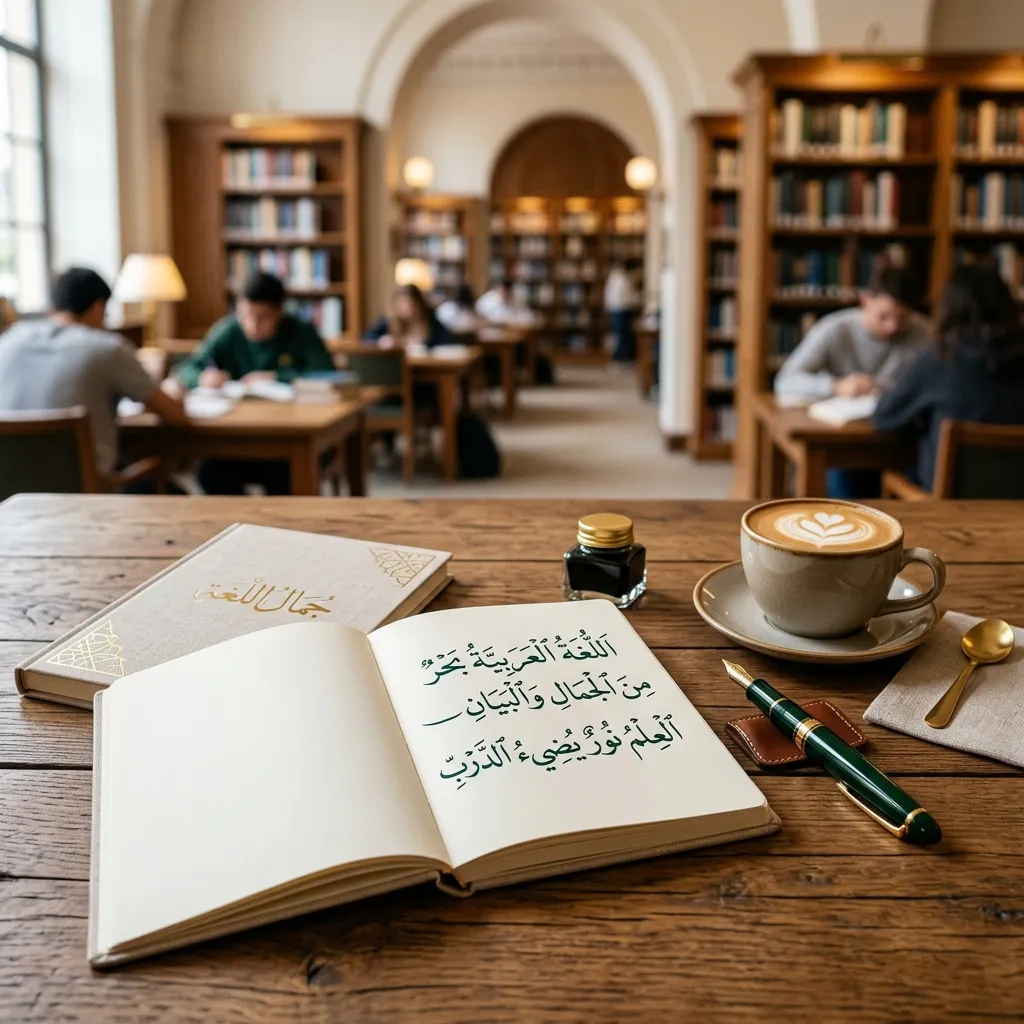 جُمَالُ اللَّغَة
اَللُّغَةُ الْعَرَبِيَّةُ بَحْرٌ
مِنَ الْجَمَالِ وَالْبَيَانِ
الْعِلْمُ نُورٌ يُضِيءُ الدَّرْبِّ